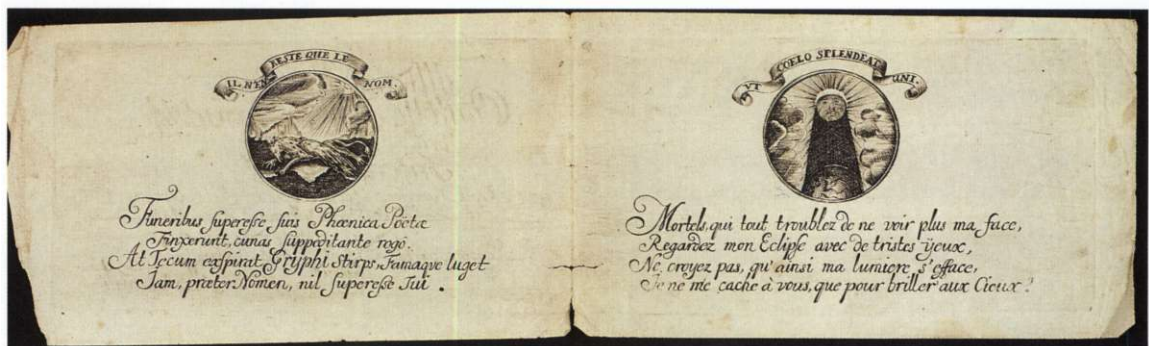 IL N'EN RESTE QUE LE NOM.
Funeribus superesse suis Phœnica Poëtæ
Finxerunt, cunas suppeditante rogo.
At Tecum exspirat Gryphi Stirps, Famaque luget
Jam, præter Nomen, nil superesse Tui.
VT COELO SPLENDEAT UNI.
Mortels, qui tout troublez de ne voir plus ma face,
Regardez mon Eclipse avec de tristes ÿeux,
Ne croyez pas, qu'ainsi ma lumiere s'efface,
Je ne me cache à vous, que pour briller aux Cieux?